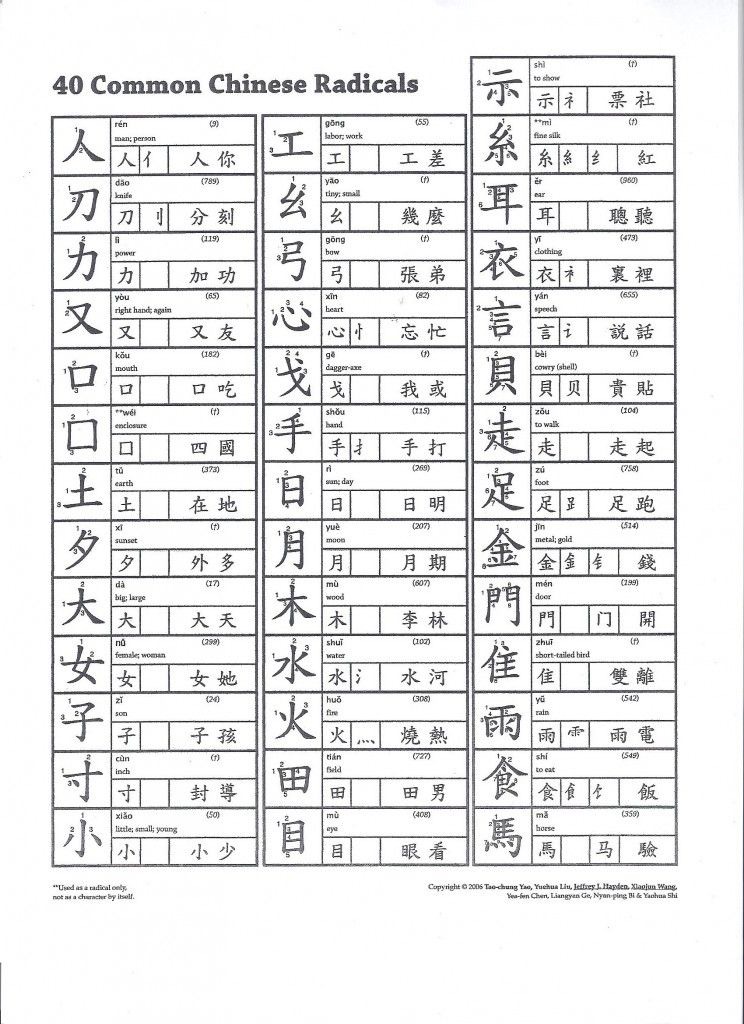 40 Common Chinese Radicals
人
rén (9)
man; person
人 亻 人 你
刀
dāo (789)
knife
刀 刂 分 刻
力
lì (119)
power
力 加 功
又
yòu (65)
right hand; again
又 又 友
口
kǒu (182)
mouth
口 口 吃
囗
**wéi (f)
enclosure
囗 四 國
土
tǔ (373)
earth
土 在 地
夕
xī (f)
sunset
夕 外 多
大
dà (17)
big; large
大 大 天
女
nǚ (299)
female; woman
女 女 她
子
zǐ (24)
son
子 子 孩
寸
cùn (f)
inch
寸 封 導
小
xiǎo (50)
little; small; young
小 小 少
工
gōng (55)
labor; work
工 工 差
幺
yāo (f)
tiny; small
幺 幾 麼
弓
gōng (f)
bow
弓 張 弟
心
xīn (82)
heart
心 忄 忘 忙
戈
gē (f)
dagger-axe
戈 我 或
手
shǒu (115)
hand
手 扌 手 打
日
rì (269)
sun; day
日 日 明
月
yuè (207)
moon
月 月 期
木
mù (607)
wood
木 李 林
水
shuǐ (102)
water
水 氵 水 河
火
huǒ (308)
fire
火 灬 燒 熱
田
tián (727)
field
田 田 男
目
mù (408)
eye
目 眼 看
示
shì (f)
to show
示 礻 票 社
糸
**mì (f)
fine silk
糸 糹 纟 紅
耳
ěr (960)
ear
耳 聰 聽
衣
yī (473)
clothing
衣 衤 裏 裡
言
yán (655)
speech
言 讠 説 話
貝
bèi (f)
cowry (shell)
貝 贝 貴 貼
走
zǒu (104)
to walk
走 走 起
足
zú (758)
foot
足 𧾷 足 跑
金
jīn (514)
metal; gold
金 釒 钅 錢
門
mén (199)
door
門 门 開
隹
zhuī (f)
short-tailed bird
隹 雙 離
雨
yǔ (542)
rain
雨 ⻗ 雨 電
食
shí (549)
to eat
食 飠 饣 飯
馬
mǎ (359)
horse
馬 马 驗
**Used as a radical only,
not as a character by itself.
Copyright © 2006 Tao-chung Yao, Yuehua Liu, Jeffrey J. Hayden, Xiaojun Wang,
Yea-fen Chen, Liangyan Ge, Nyan-ping Bi & Yaohua Shi